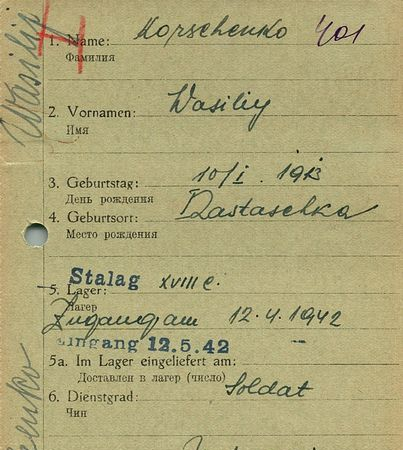 Wasilij
1. Name: Korschenko 401
Фамилия
2. Vornamen: Wasiliy
Имя
3. Geburtstag: 10/I. 1913
День рождения
4. Geburtsort: Nastaschka
Место рождения
Stalag XVIII C.
5. Lager:
Лагерь
Zugang am 12.4.1942
Eingang 12.5.42
5a. Im Lager eingeliefert am:
Доставлен в лагерь (число)
6. Dienstgrad: Soldat
Чин
enko